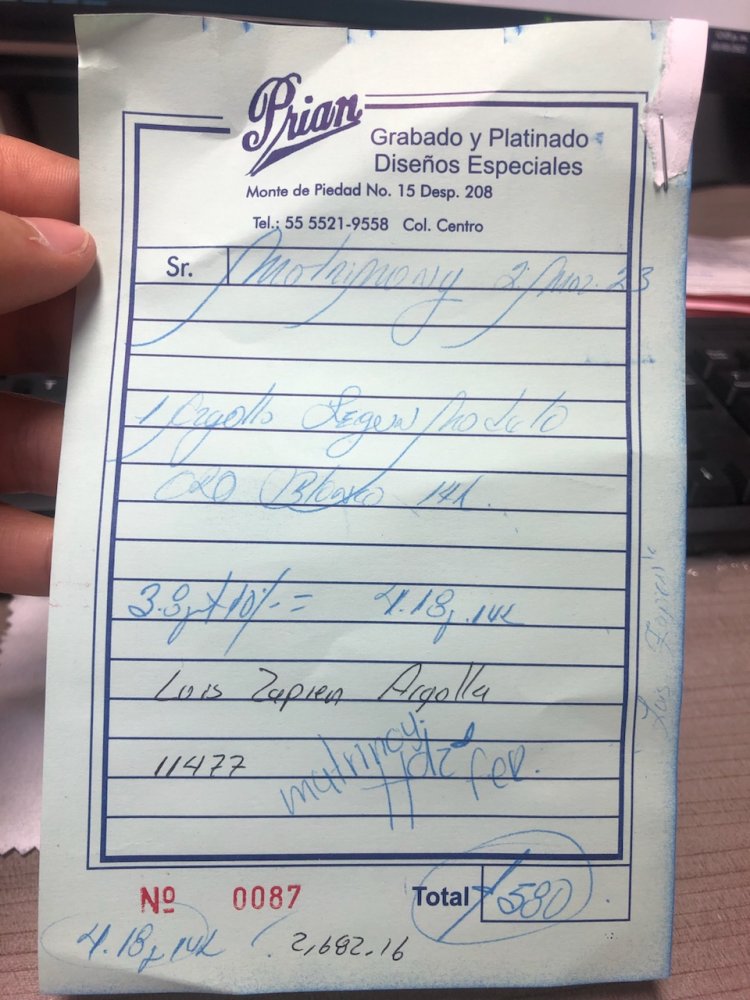 Prian
Grabado y Platinado
Diseños Especiales
Monte de Piedad No. 15 Desp. 208
Tel.: 55 5521-9558 Col. Centro
Sr. Matrimony 2 Mar. 23
1 Argolla Segun Modelo
ORO Blanco 14k.
3.8g + 10% = 4.18g. 14k
Luis Zapien Argolla
11477
Fer.
Luis Zapien
Nº 0087
Total 580
4.18g 14k
2,682.16